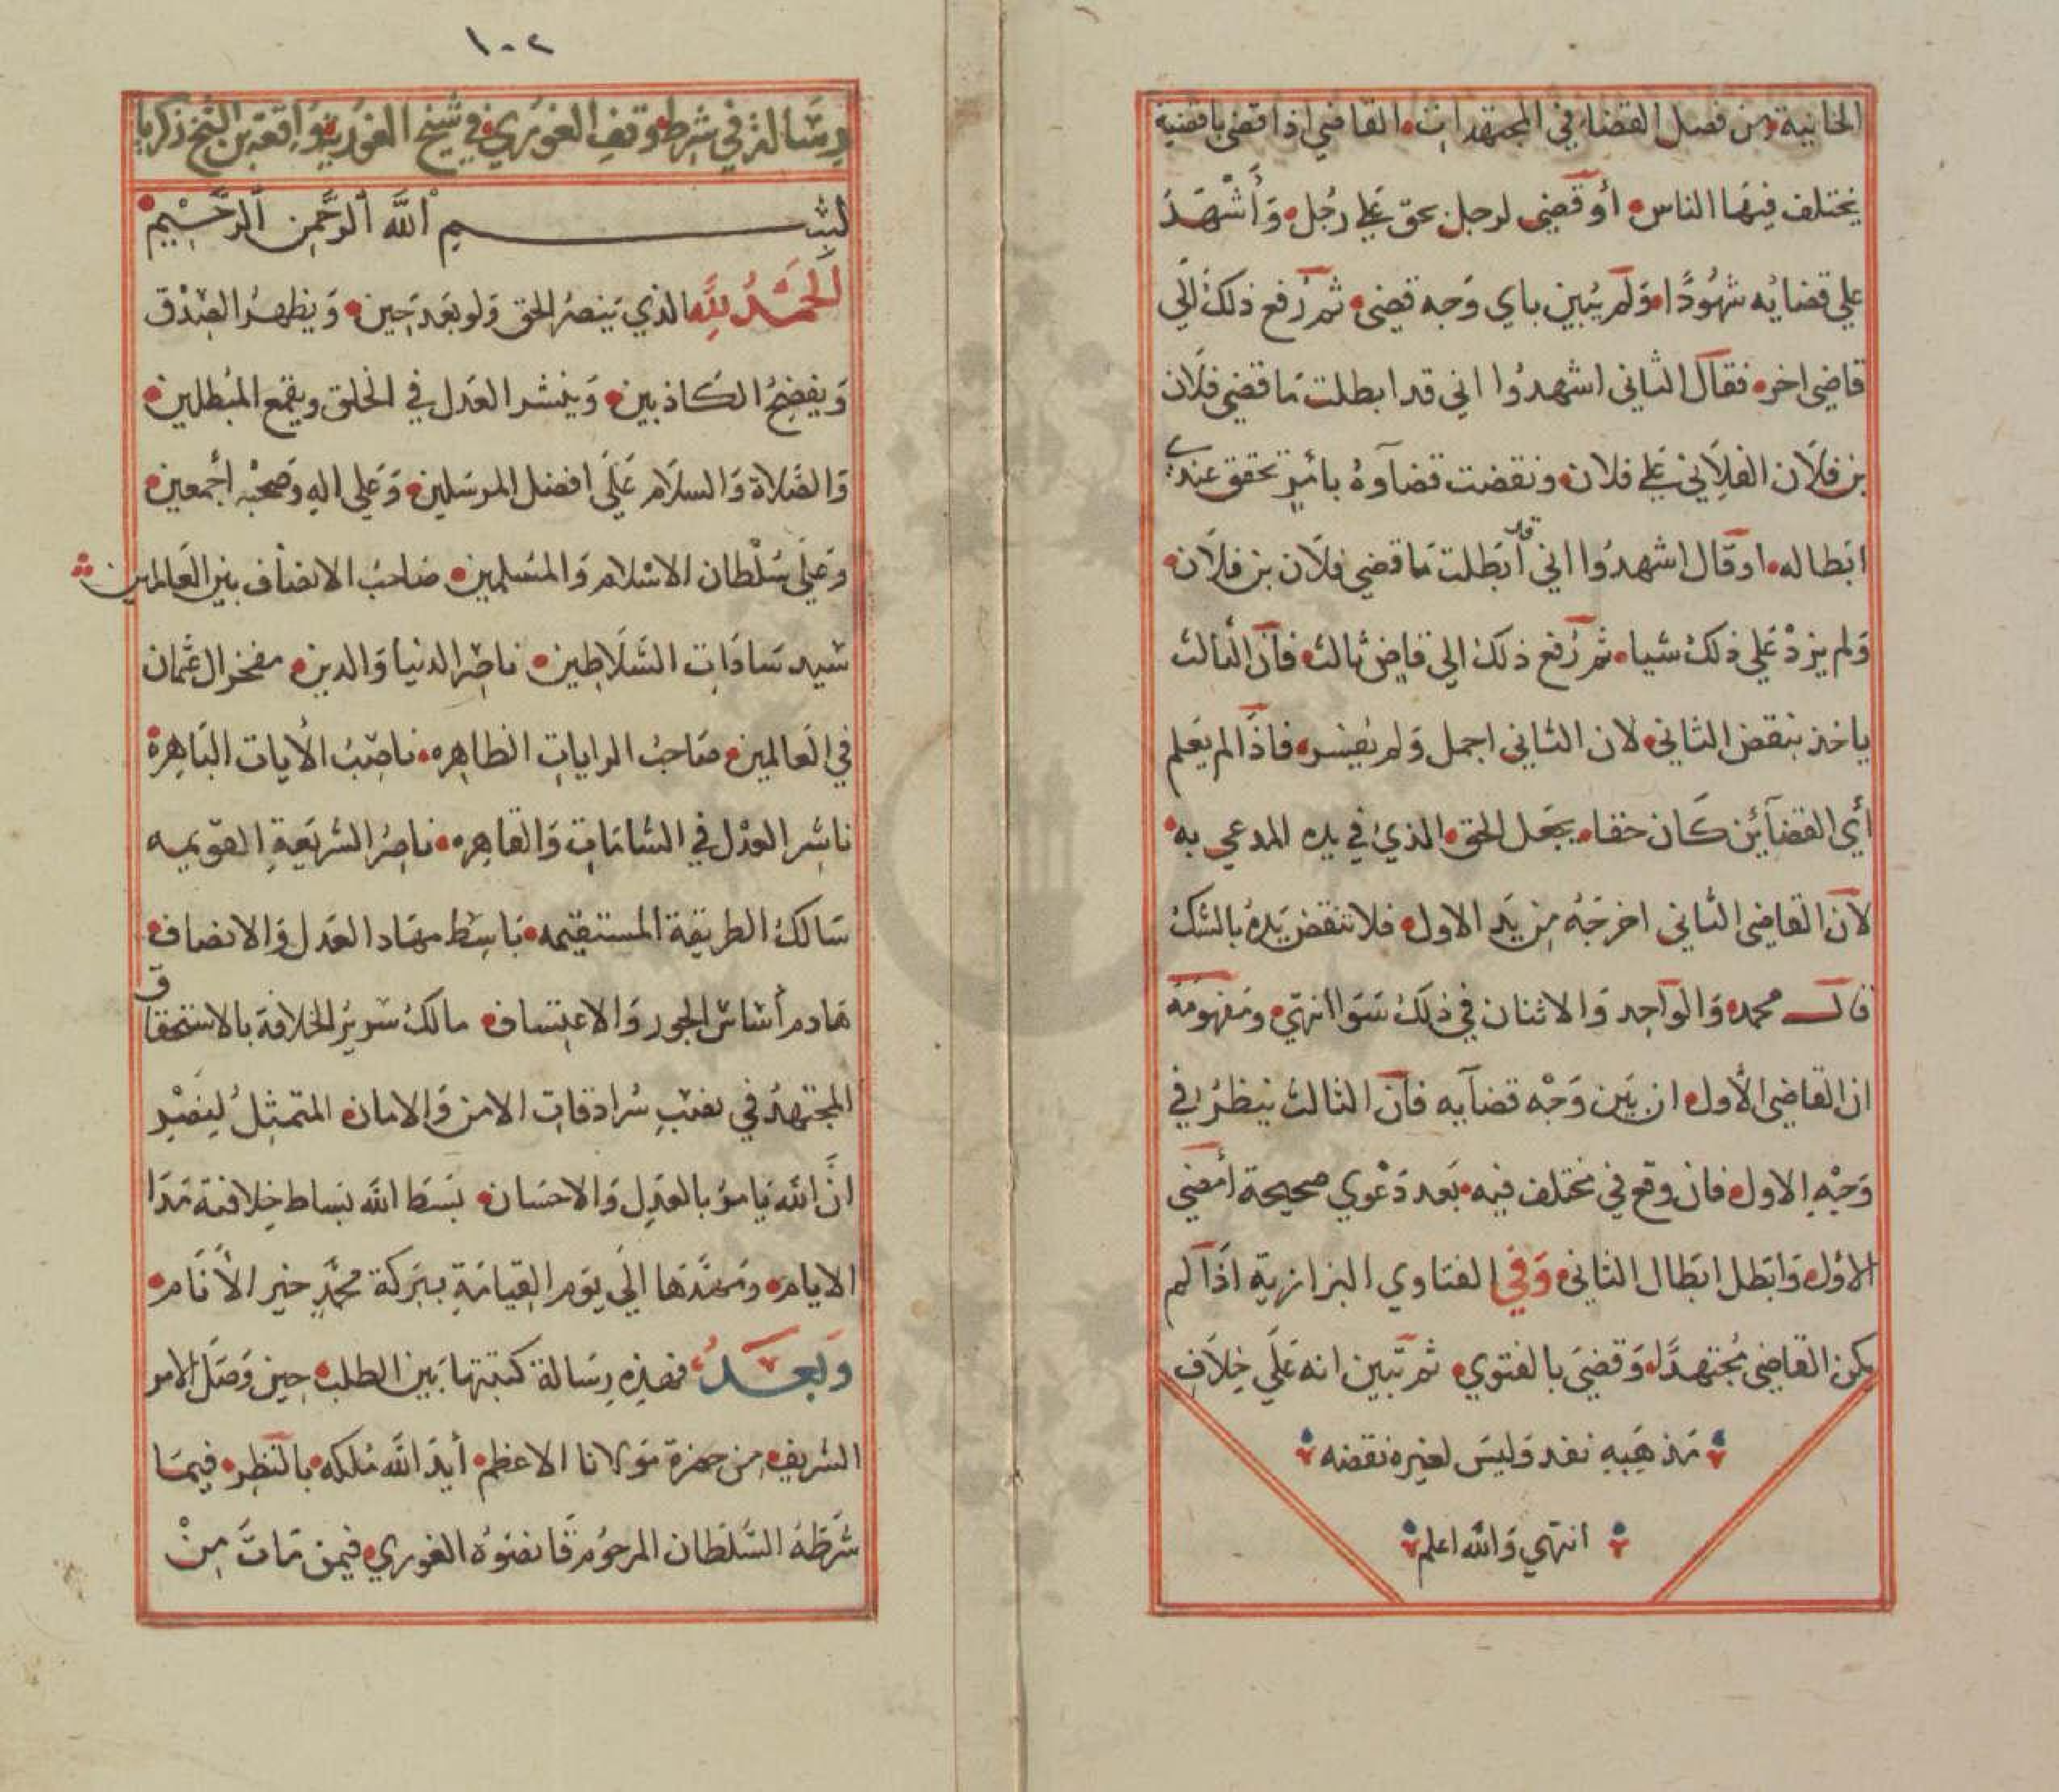 الخانية من فصل القضاء في المجتهدات القاضي اذا قضى باقضية
يختلف فيها الناس أو قضي لرجل بحق علي رجل وأشهد
علي قضايه شهودا ولم يبين باي وجه قضي ثم رفع ذلك الي
قاضي اخر فقال الثاني اشهدوا اني قد ابطلت ما قضي فلان
بن فلان الفلاني علي فلان ونقضت قضآوه بامر تحقق عندي
ابطاله او قال اشهدوا اني قد أبطلت ما قضي فلان بن فلان
ولم يزد علي ذلك شيا ثم رفع ذلك الي قاض ثالث فان الثالث
ياخذ بنقض الثاني لان الثاني اجمل ولم يفسر فاذا لم يعلم
أي القضآئين كان حقا يجعل الحق الذي في يده المدعي به
لان القاضي الثاني اخرجه من يد الاول فلا تنقض يده بالشك
قال محمد والواحد والاثنان في ذلك سوا انتهي ومفهومه
ان القاضي الأول ان بين وجه قضآيه فان الثالث ينظر في
وجه الاول فان وقع في مختلف فيه بعد دعوي صحيحة أمضي
الاول وابطل ابطال الثاني وفي الفتاوي البزازية اذا لم
يكن القاضي مجتهدا وقضي بالفتوي ثم تبين انه علي خلاف
مذهبه نفد وليس لغيره نقضه
انتهي والله اعلم
١٠٢
رسالة في شرط وقف الغوري في شيخ الغورية واقعة بن الشيخ زكريا
بسم الله الرحمن الرحيم
الحمد لله الذي ينصر الحق ولو بعد حين ويظهر الصدق
ويفضح الكاذبين وينشر العدل في الخلق ويقمع المبطلين
والصلاة والسلام علي افضل المرسلين وعلي اله وصحبه أجمعين
وعلي سلطان الاسلام والمسلمين صاحب الانصاف بين العالمين
سيد سادات السلاطين ناصر الدنيا والدين مفخر ال عثمان
في العالمين صاحب الرايات الظاهره ناصب الأيات الباهرة
ناشر العدل في الشامات والقاهره ناصر الشريعة القويمه
سالك الطريقة المستقيمه باسط مهاد العدل والانصاف
هادم أساس الجور والاعتساف مالك سرير الخلافة بالاستحقاق
المجتهد في نصب سرادقات الامن والامان المتمثل لينص
ان الله يامر بالعدل والاحسان بسط الله بساط خلافته مدا
الايام ومهدها الي يوم القيامة ببركة محمد خير الأنام
وبعد فهذه رسالة كتبتها بين الطلب حين وصل الامر
الشريف من حضرة مولانا الاعظم أيد الله ملكه بالنظر فيما
شرطه السلطان المرحوم قانصوه الغوري فيمن مات من